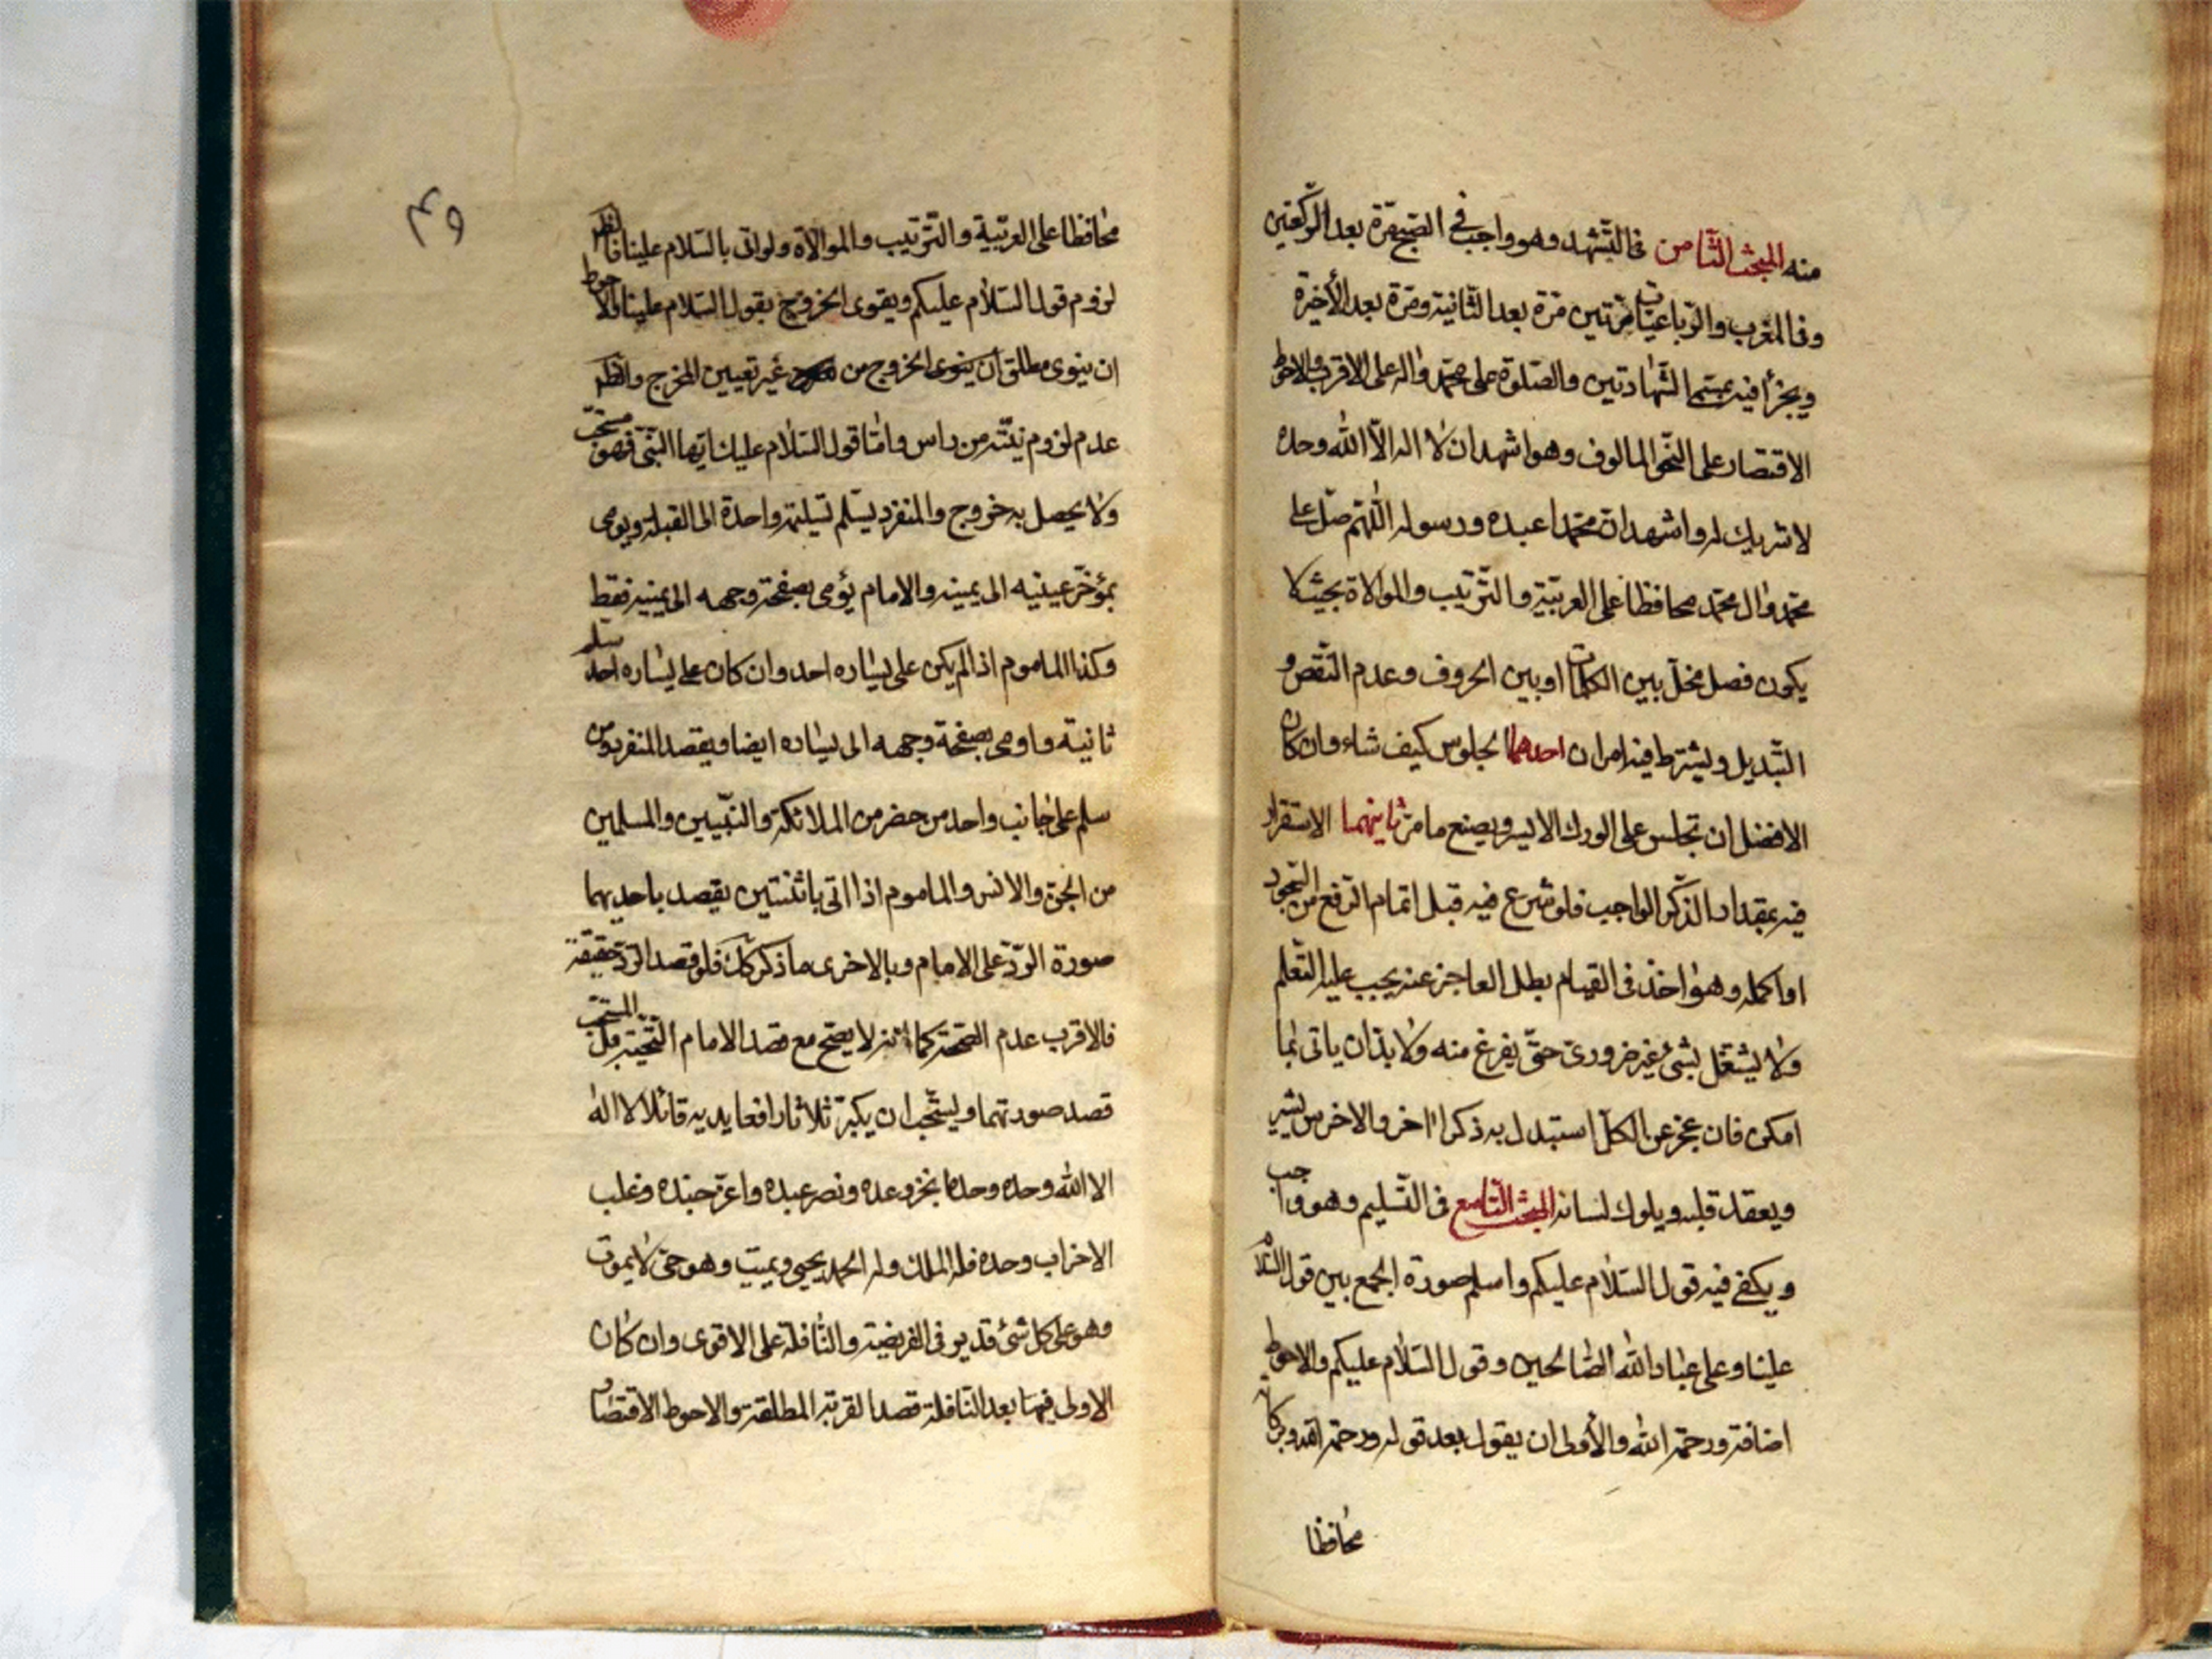 منه المبحث الثامن في التشهد وهو واجب في الصبح مرة بعد الركعتين
وفي المغرب والرباعيات مرتين مرة بعد الثانية ومرة بعد الأخيرة
ويجزأ فيه الشهادتين والصلوة على محمد واله على الاقرب والاحوط
الاقتصار على النحو المالوف وهو اشهد ان لا اله الا الله وحده
لا شريك له واشهد ان محمدا عبده ورسوله اللهم صل على
محمد وال محمد محافظا على العربية والترتيب والموالاة بحيث لا
يكون فصل مخل بين الكلمات او بين الحروف وعدم النقص و
التبديل ويشترط فيه امران احدهما الجلوس كيف شاء وان كان
الافضل ان تجلس على الورك الايسر ويصنع ما مر ثانيهما الاستقرار
فيه بمقدار الذكر الواجب فلو شرع فيه قبل اتمام الرفع من السجود
او اكمله وهو اخذ في القيام بطل العاجز عنه يجب عليه التعلم
ولا يشتغل بشئ غير ضروري حتى يفرغ منه ولا بد ان ياتى بما
امكن فان عجز عن الكل استبدل به ذكرا اخر والاخرس يشير
ويعقد قلبه ويلوك لسانه المبحث التاسع في التسليم وهو واجب
ويكفي فيه قول السلام عليكم واسلم صورة الجمع بين قول السلام
علينا وعلى عباد الله الصالحين وقول السلام عليكم والاحوط
اضافة ورحمة الله والأولى ان يقول بعد قوله ورحمة الله وبركاته
محافظا
٤٩
محافظا على العربية والترتيب والموالاة ولو اتى بالسلام علينا فالظر
لزوم قول السلام عليكم ويقوى الخروج بقول السلام علينا فالاحوط
ان ينوى مطلق ان ينوى الخروج من غير تعيين المخرج والظر
عدم لزوم نيته من راس واما قول السلام عليك ايها النبي فهو مستحب
ولا يحصل به خروج والمنفرد يسلم تسليمة واحدة الى القبلة ويومى
بمؤخر عينيه الى يمينه والامام يؤمى بصفحة وجهه الى يمينه فقط
وكذا الماموم اذا لم يكن على يساره احد وان كان على يساره احد سلم
ثانية واومى بصفحة وجهه الى يساره ايضا ويقصد المنفرد ومن
سلم على جانب واحد من حضر من الملائكة والنبيين والمسلمين
من الجن والانس والماموم اذا اتى باثنتين يقصد باحديهما
صورة الرد على الامام وبالاخرى ما ذكر كك فلو قصد الرد حقيقة
فالاقرب عدم الصحة كما انه لا يصح مع قصد الامام التحية بل المستحب
قصد صورتهما ويستحب ان يكبر ثلاثا رافعا يديه قائلا لا اله
الا الله وحده وحده انجز وعده ونصر عبده واعز جنده وغلب
الاحزاب وحده فله الملك وله الحمد يحيى ويميت وهو حي لا يموت
وهو على كل شئ قدير في الفريضة والنافلة على الاقوى وان كان
الاولى فيما بعد النافلة قصد القربة المطلقة والاحوط الاقتصار